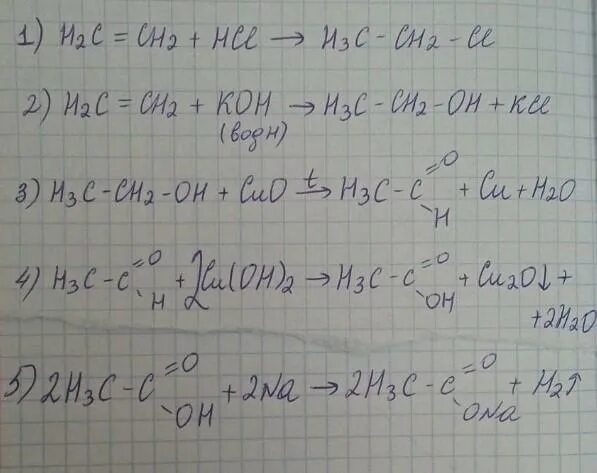 1) H2C = CH2 + HCl → H3C - CH2 - Cl
2) H2C = CH2 + KOH → H3C - CH2 - OH + KCl
(водн)
3) H3C - CH2 - OH + CuO t→ H3C - C =O \ H + Cu + H2O
4) H3C - C =O \ H + 2Cu(OH)2 → H3C - C =O \ OH + Cu2O↓ +
+2H2O
5) 2H3C - C =O \ OH + 2Na → 2H3C - C =O \ ONa + H2↑